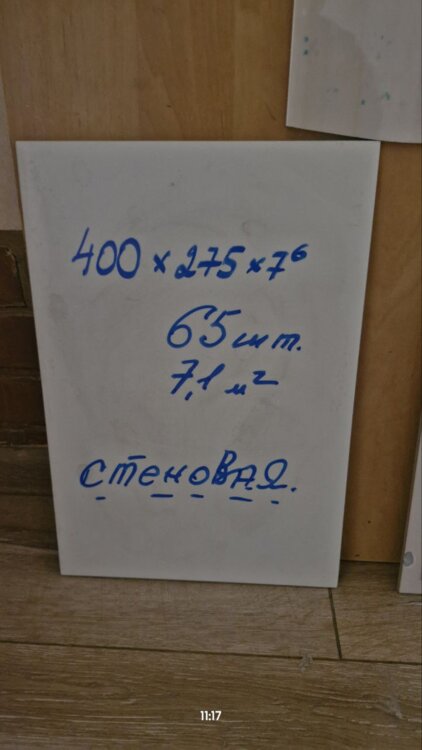 400 × 275 × 7⁶
65 шт.
7,1 м²
стеновая.
11:17